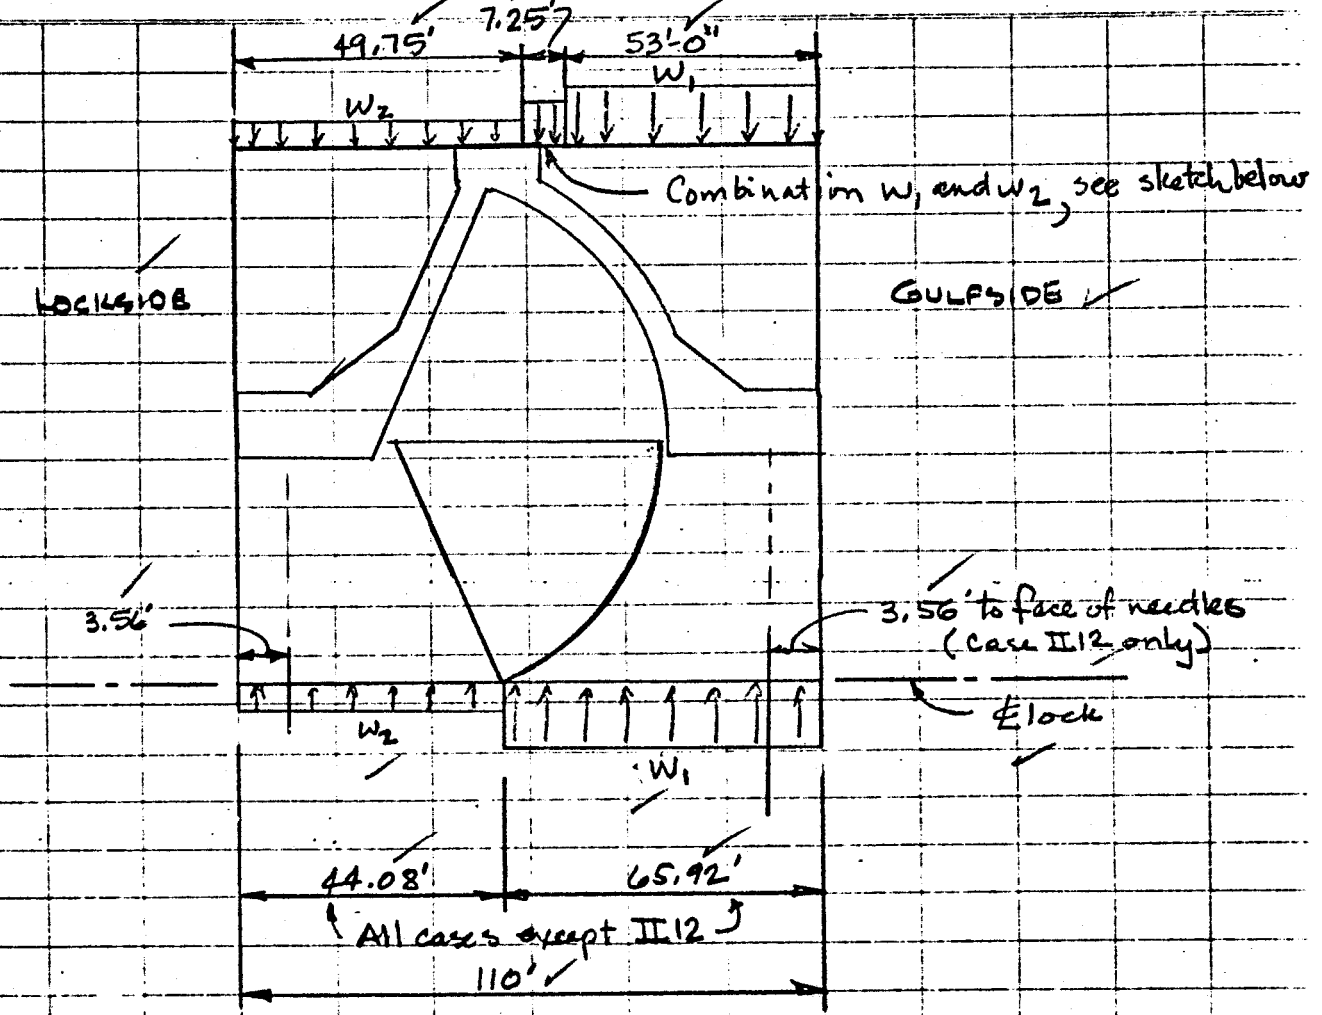 7.25'
49.75'
53'-0"
W₁
W₂
Combination W₁ and W₂, see sketch below
LOCKSIDE
GULFSIDE
3.56'
3.56' to face of needles
(Case II.12 only)
℄ lock
W₂
W₁
44.08'
65.92'
All cases except II.12
110'